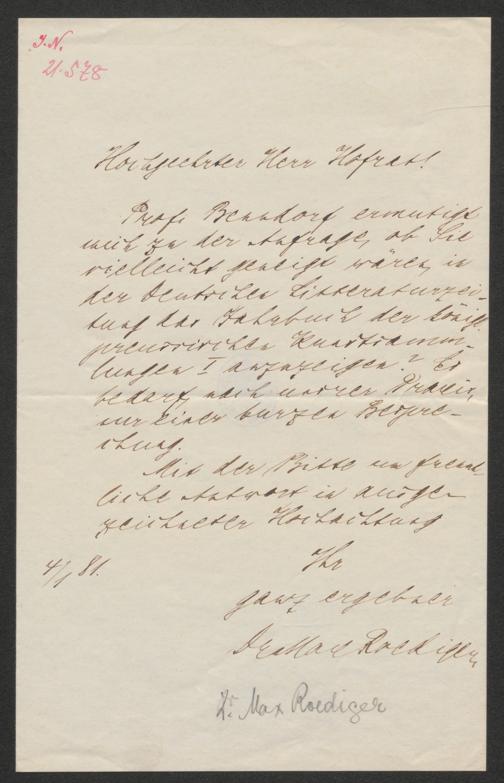 J.N.
21.578
Hochgeehrter Herr Hofrat!
Prof. Benndorf ermutigt
mich zu der Anfrage, ob Sie
vielleicht geneigt wären, in
der Deutschen Litteraturzei-
tung das Jahrbuch der königl.
preussischen Kunstsamm-
lungen I anzuzeigen? Es
bedarf nach unsrer Praxis
nur einer kurzen Bespre-
chung.
Mit der Bitte um freund-
liche Antwort in ausge-
zeichneter Hochachtung
4/1 81.
Ihr
ganz ergebner
Dr Max Roediger
Dr. Max Roediger